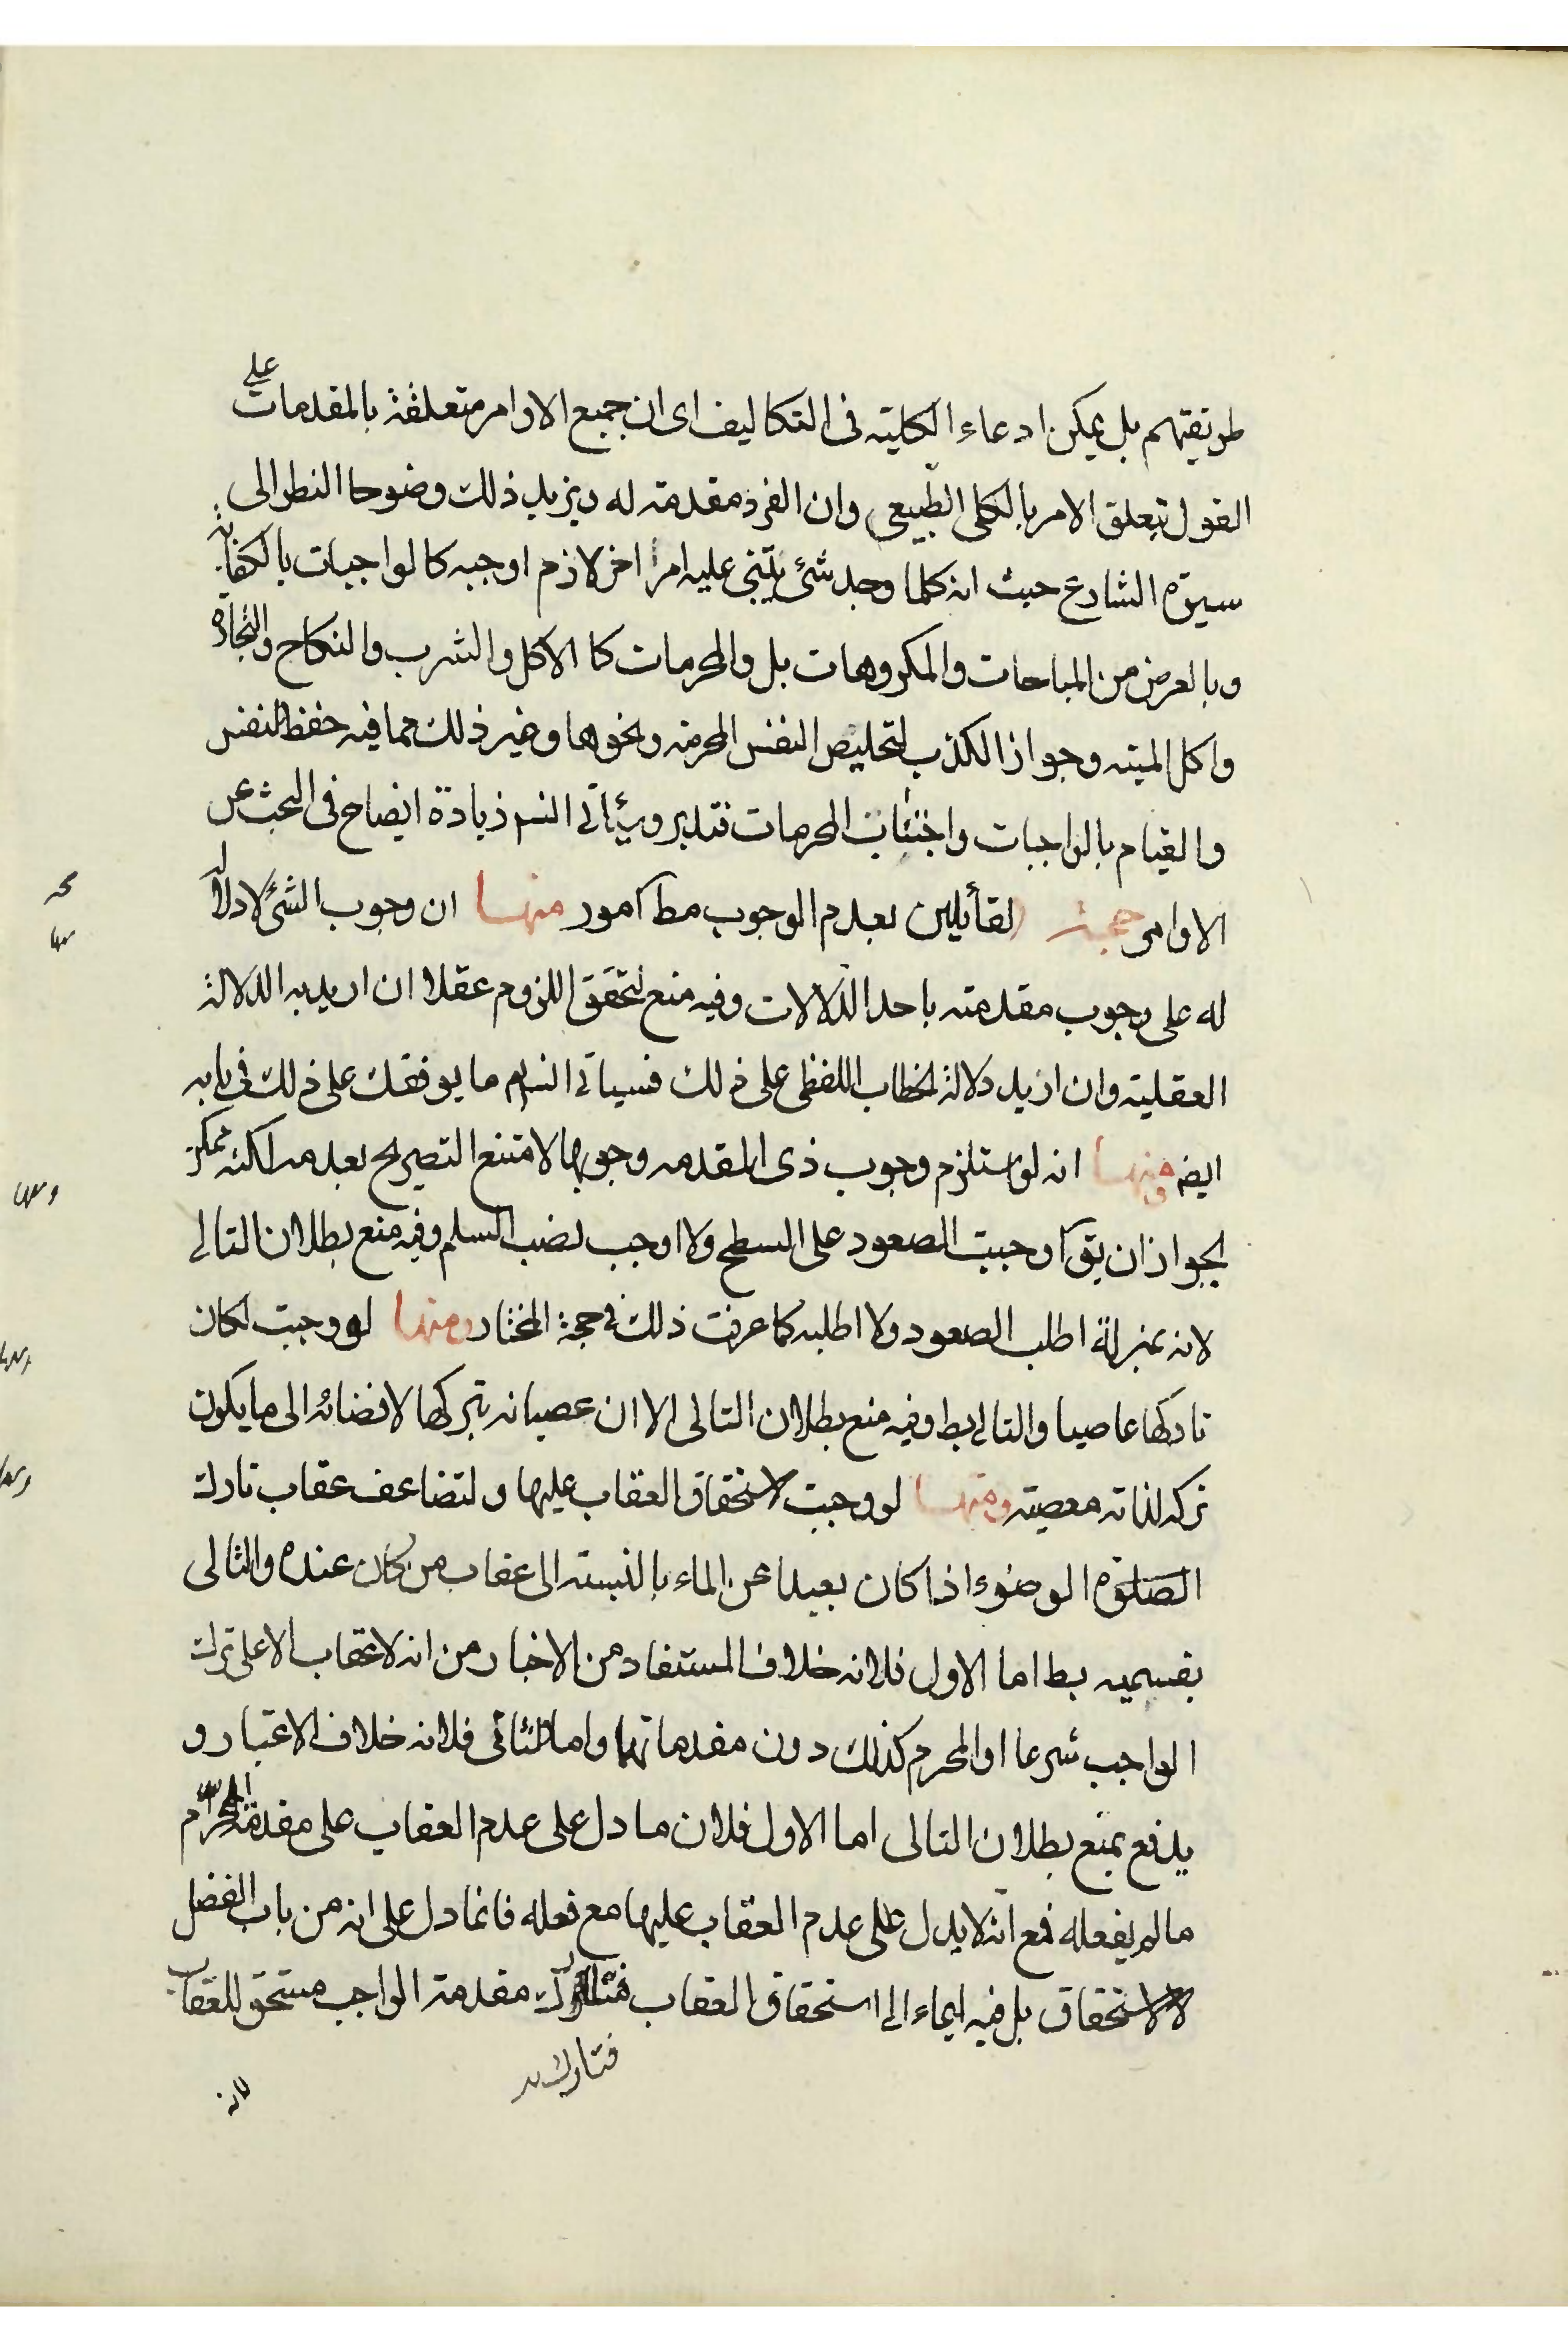 طريقتهم بل يمكن ادعاء الكلية فى التكاليف اى ان جميع الاوامر متعلقة بالمقدمات على
القول بتعلق الامر بالكلى الطبيعى وان الفرد مقدمة له ويزيد ذلك وضوحا النظر الى
سيرة الشارع حيث انه كلما وجد شئ يبتنى عليه امرا اخر لازم اوجبه كالواجبات بالكفاية
وبالعرض من المباحات والمكروهات بل والمحرمات كا الاكل والشرب والنكاح والتجارة
واكل الميته وجواز الكذب لتخليص النفس المحرمة ونحوها وغير ذلك مما فيه حفظ النفس
والقيام بالواجبات واجتناب المحرمات فتدبر وسيأتى انش زيادة ايضاح فى البحث عن
الاوامر حجة القائلين بعدم الوجوب مط امور منها ان وجوب الشئ لا دلالة
له على وجوب مقدمته باحد الدلالات وفيه منع لتحقق اللزوم عقلا ان اريد به الدلالة
العقلية وان اريد دلالة الخطاب اللفظى على ذلك فسيأتى انش ما يوفقك على ذلك فى بابه
ايض ومنها انه لو استلزم وجوب ذى المقدمه وجوبها لامتنع التصريح بعدمه لكنه ممكن
لجواز ان يق اوجبت الصعود على السطح ولا اوجب نصب السلم وفيه منع بطلان التالى
لانه بمنزلة اطلب الصعود ولا اطلبه كما عرفت ذلك فى حجة المختار ومنها لو وجبت لكان
تاركها عاصيا والتالى بط وفيه منع بطلان التالى الا ان عصيانه بتركها لافضائه الى ما يكون
تركه لذاته معصية ومنها لو وجبت لاستحقاق العقاب عليها ولتضاعف عقاب تارك
الصلوة الوضوء اذا كان بعيدا عن الماء بالنسبته الى عقاب من كان عنده والتالى
بقسميه بط اما الاول فلانه خلاف المستفاد من الاخبار من انه لا عقاب الا على ترك
الواجب شرعا او المحرم كذلك دون مقدماتهما واما الثانى فلانه خلاف الاعتبار و
يدفع بمنع بطلان التالى اما الاول فلان ما دل على عدم العقاب على مقدمة الحرام
مالم يفعله فمع انه لا يدل على عدم العقاب عليها مع فعله فانما دل على انه من باب الفضل
لا الاستحقاق بل فيه ايماء الى استحقاق العقاب فتارك مقدمة الواجب مستحق للعقاب
فتارك
لانه